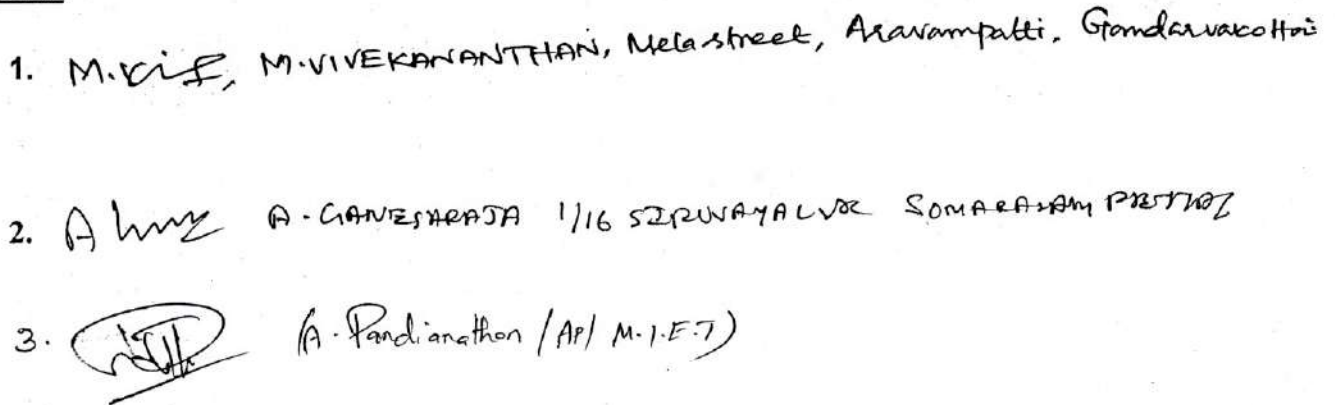 1. M. M.VIVEKANANTHAN, Melastreet, Aravampatti, Gandarvakottai
2. A A.GANESHRAJA 1/16 SIRUVAYALUR SOMARASAMPETTAI
3. (A. Pandianathan / AP/ M.I.E.T)